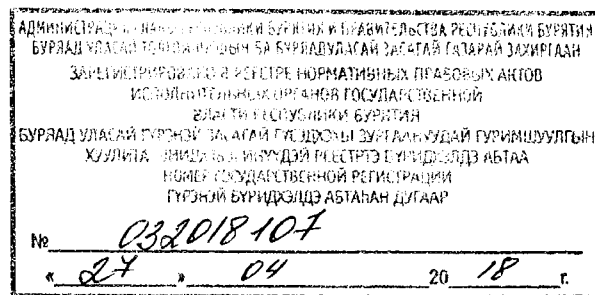 АДМИНИСТРАЦИЯ РЕСПУБЛИКИ БУРЯТИЯ И ПРАВИТЕЛЬСТВА РЕСПУБЛИКИ БУРЯТИЯ
БУРЯАД УЛАСАЙ БА БУРЯАД УЛАСАЙ ЗАСАГАЙ ГАЗАРАЙ ЗАХИРГААН
ЗАРЕГИСТРИРОВАНО В РЕЕСТРЕ НОРМАТИВНЫХ ПРАВОВЫХ АКТОВ
ИСПОЛНИТЕЛЬНЫХ ОРГАНОВ ГОСУДАРСТВЕННОЙ
ВЛАСТИ РЕСПУБЛИКИ БУРЯТИЯ
БУРЯАД УЛАСАЙ ГҮРЭНЭЙ ЗАСАГАЙ ГҮЙСЭДХЭХЫ ЗУРГААНУУДАЙ ГУРИМШУУЛГЫН
ХУУЛИТА РЕЕСТРТЭ БҮРИДХЭЛДЭ АБТАА
НОМЕР ГОСУДАРСТВЕННОЙ РЕГИСТРАЦИИ
ГҮРЭНЭЙ БҮРИДХЭЛДЭ АБТАҺАН ДУГААР
№ 032018107
« 27 » 04 20 18 г.